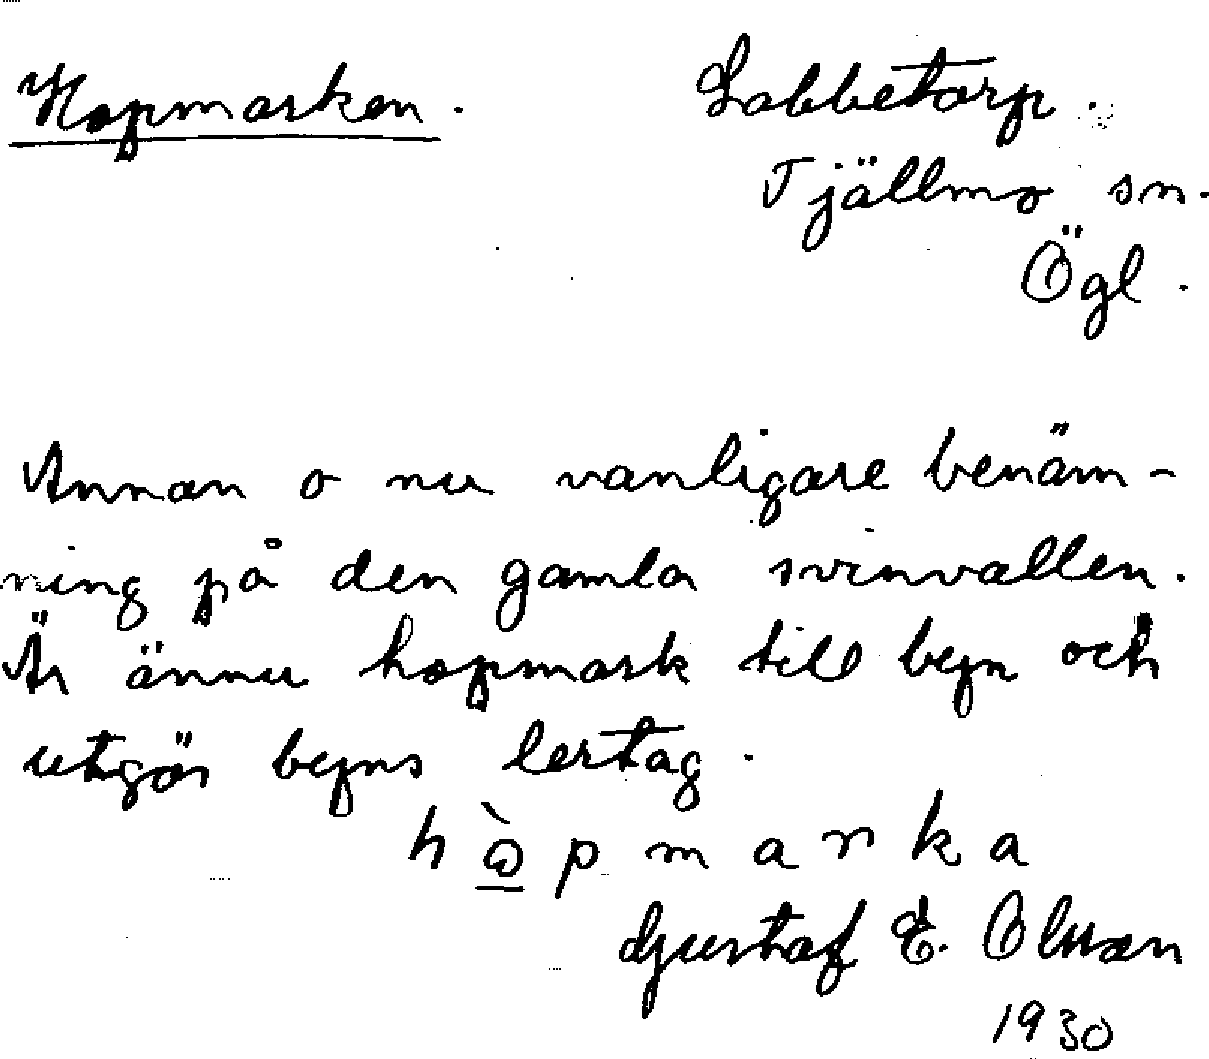 Hopmarken. Labbetorp.
Tjällmo sn.
Ögl.
Annan o nu vanligare benäm-
ning på den gamla svinvallen.
Är ännu hopmark till byn och
utgör byns lertag.
hò̱pmarka
Gustaf E. Olsson
1930